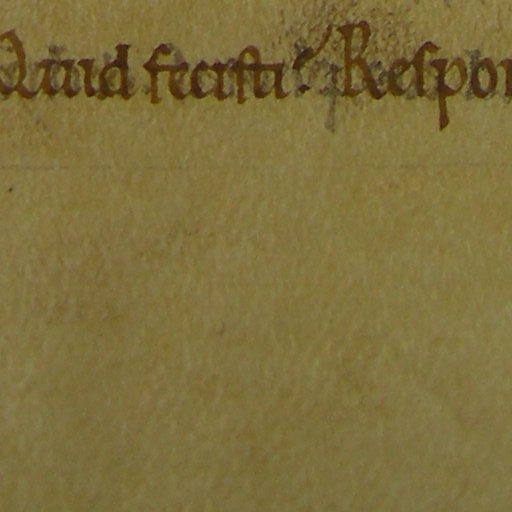 Quid fecisti? Respon